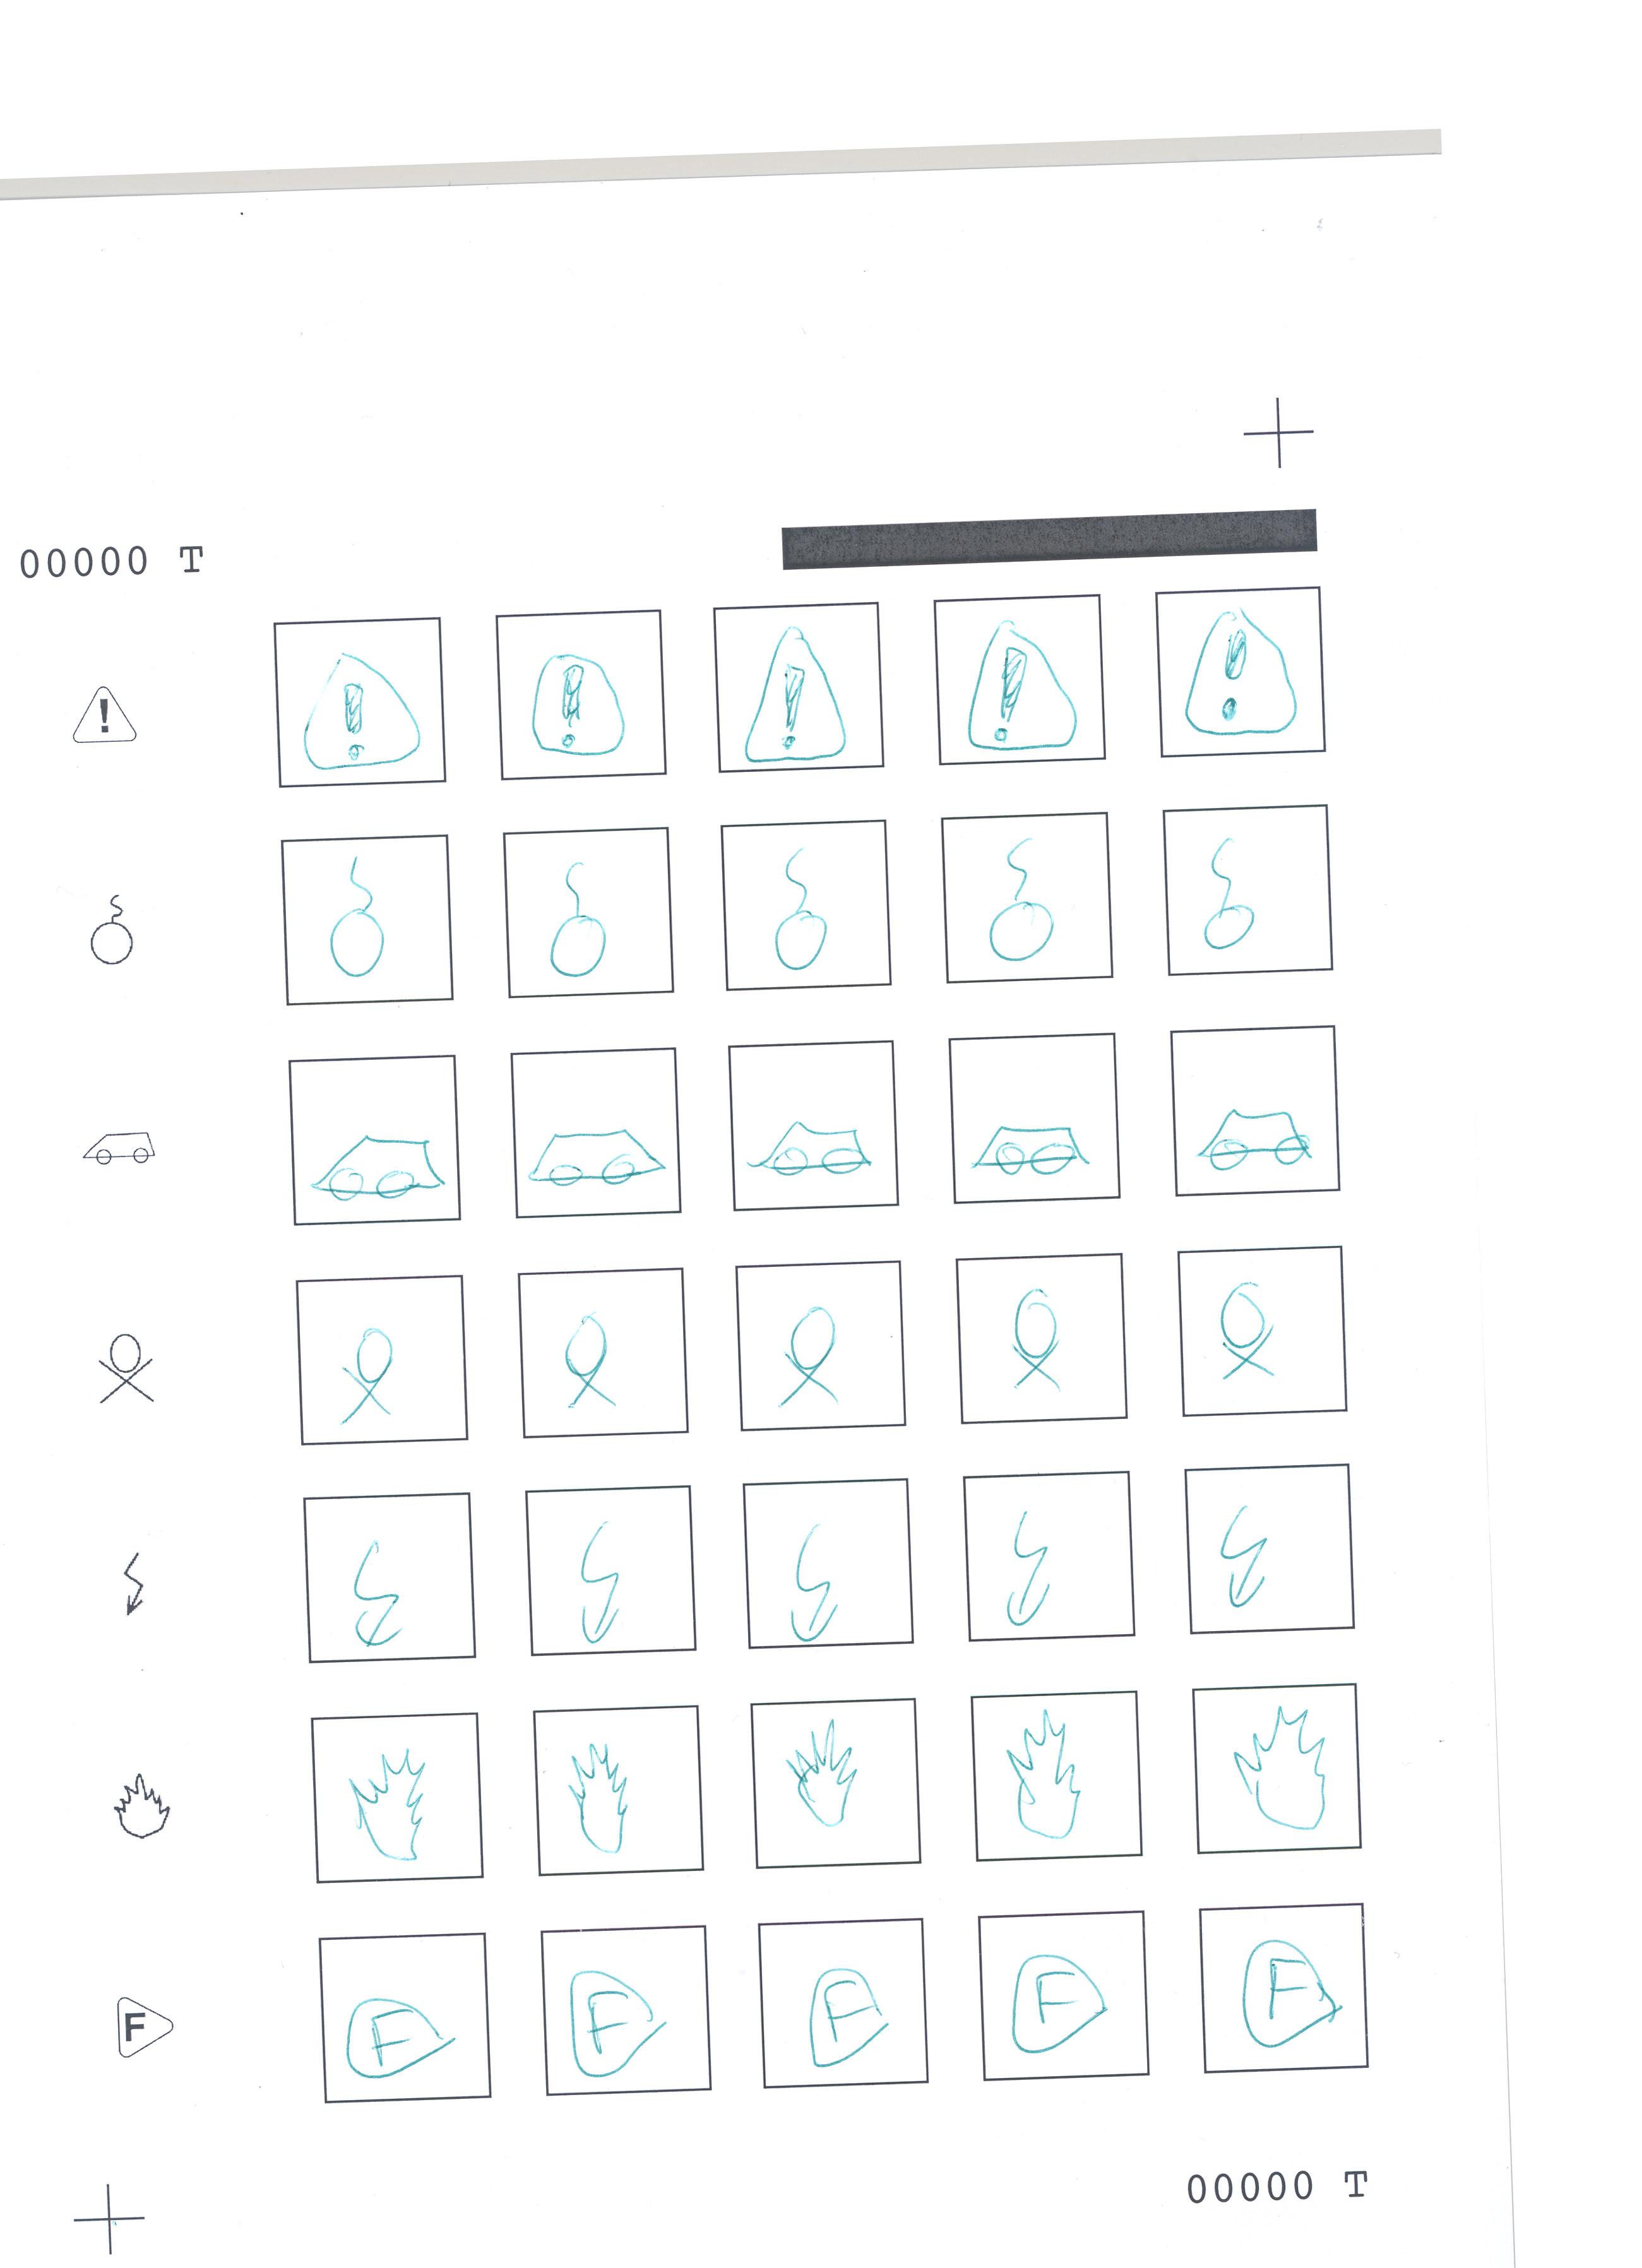 00000 T
! ! ! ! ! !
F F F F F F
00000 T